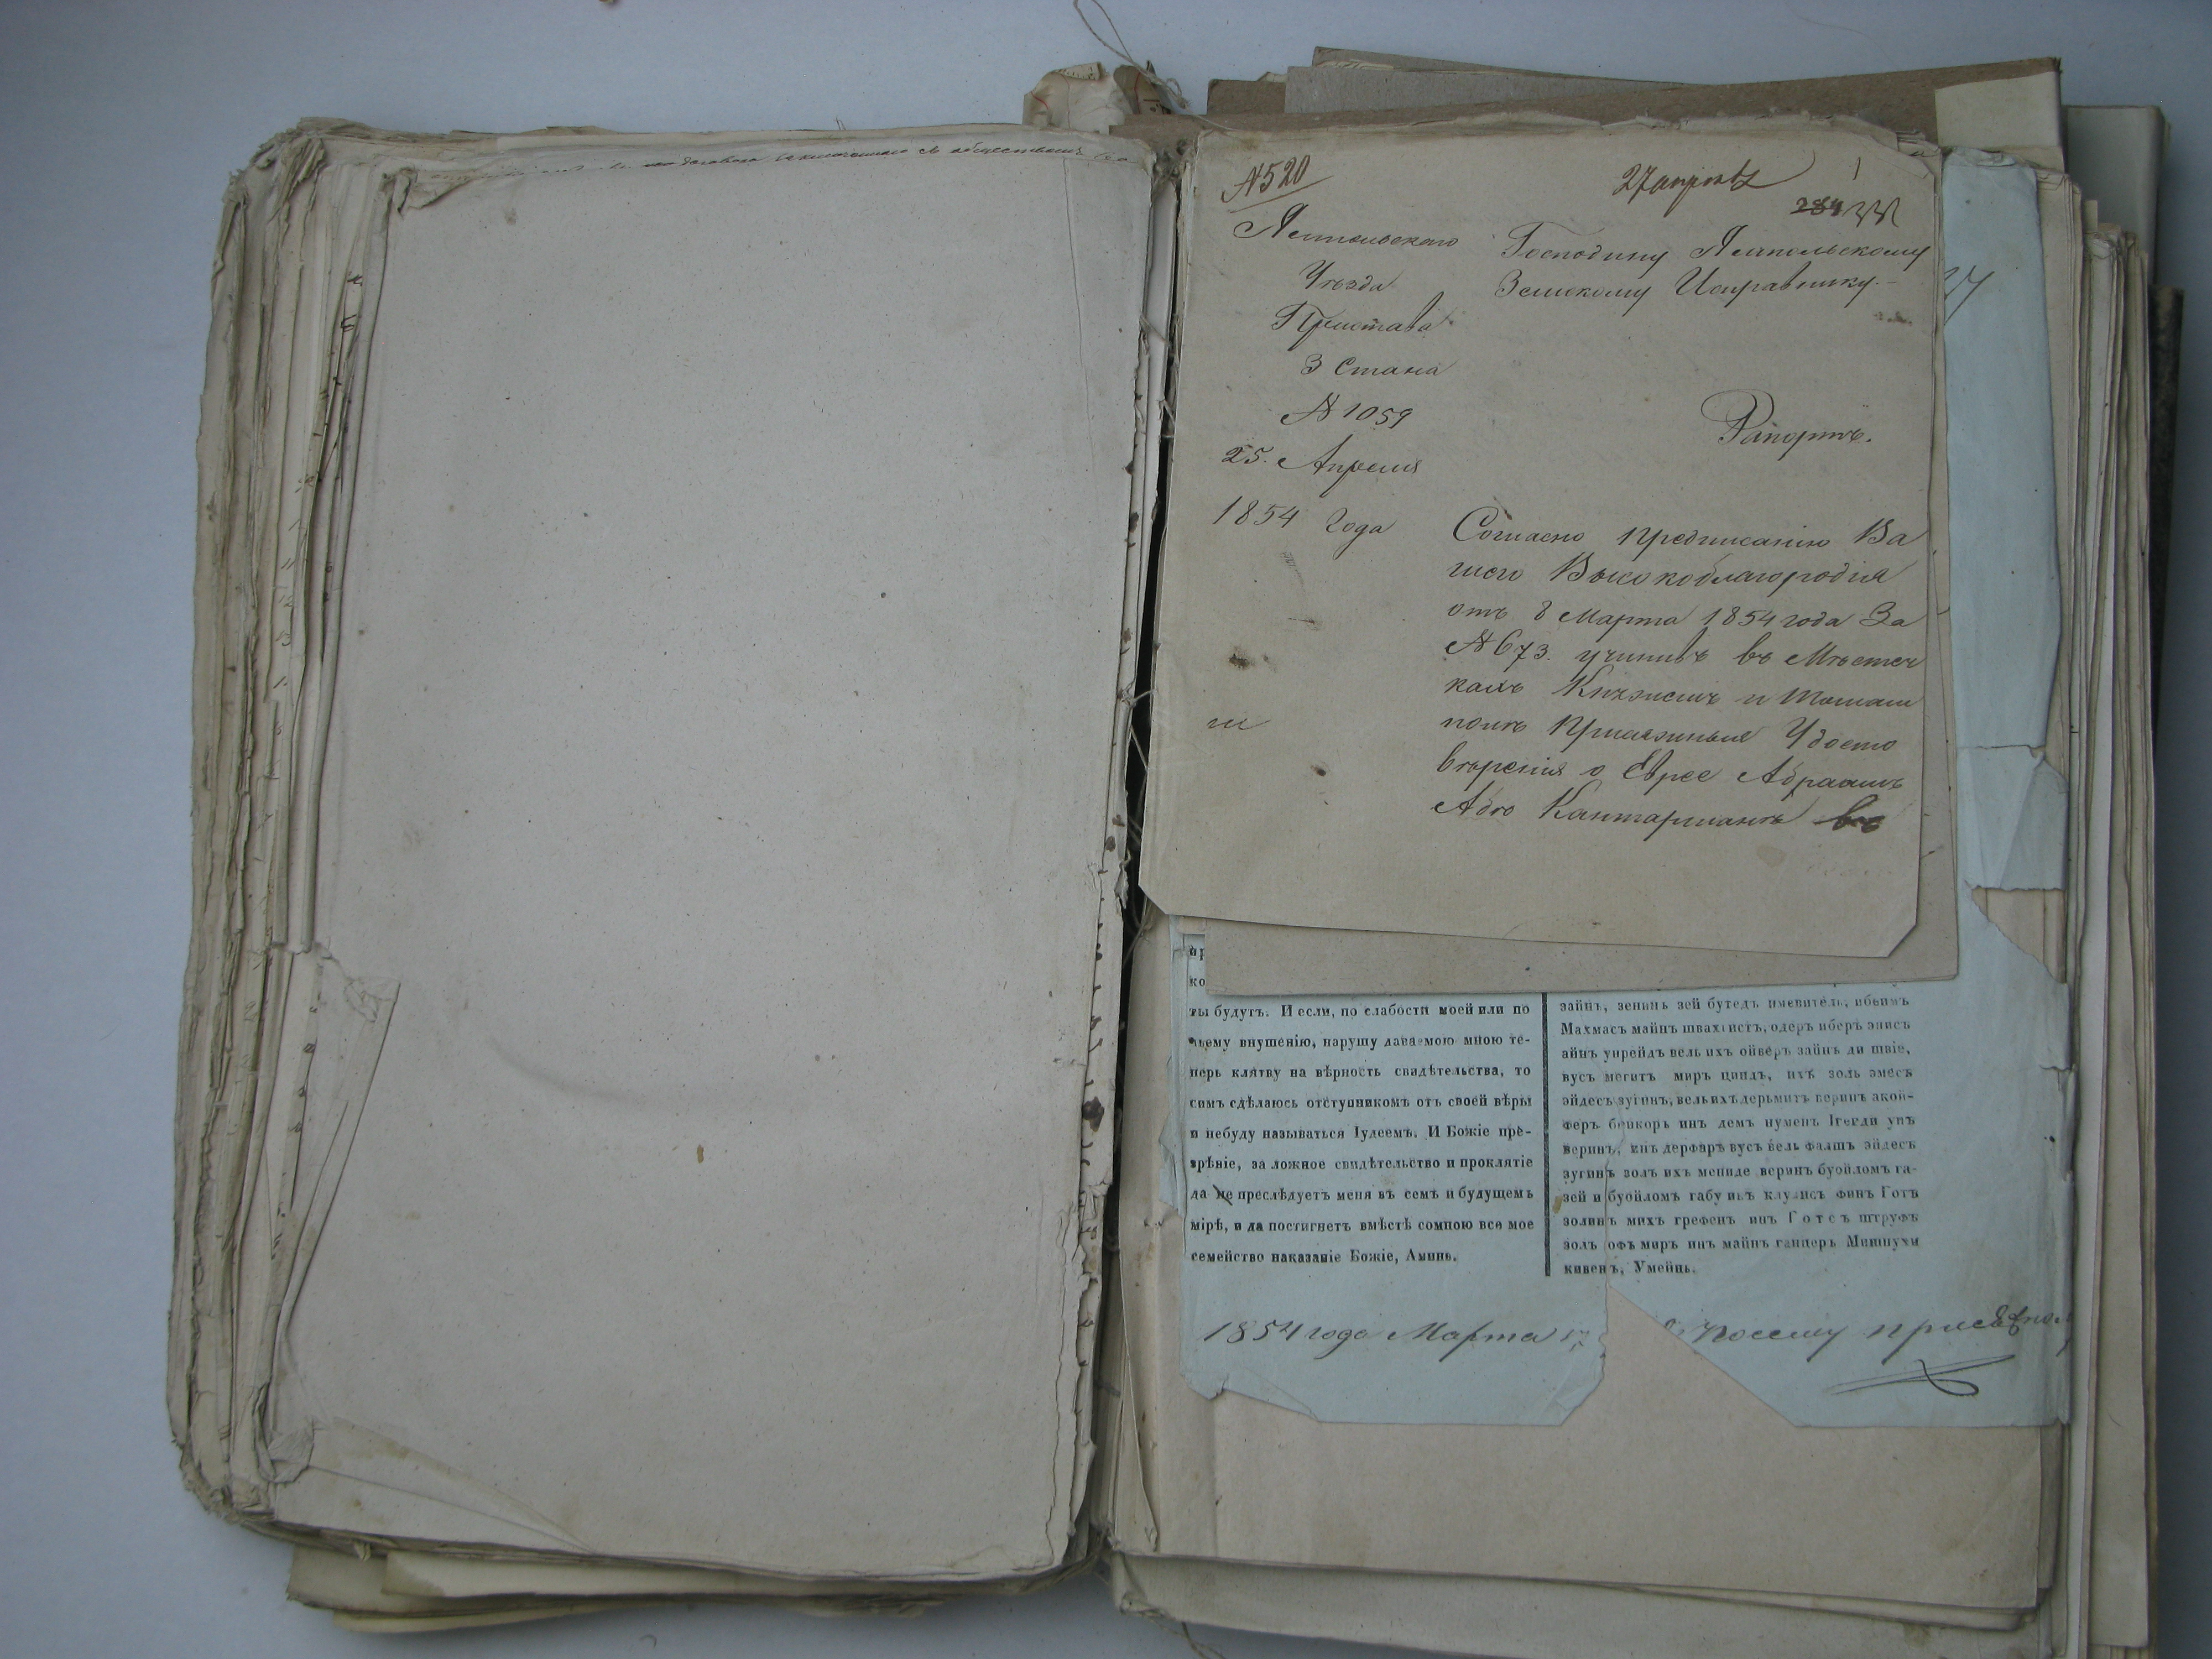 № 520
27 апреля
284
Ямпольского
Уѣзда
Пристава
3 Стана
№ 1059
25. Апреля
1854 года
Господину Ямпольскому
Земскому Исправнику.-
Рапортъ.
Согласно предписанію Ва
шего Высокоблагородія
отъ 8 Марта 1854 года За
№ 673. учинивъ въ Мѣстеч
кахъ и Томаш
полѣ Присяжныя Удосто
вѣренія о Еврее Абраамѣ
Абѣ Кантарманѣ
27
ко
ты будутъ. И если, по слабости моей или по
чьему внушенію, нарушу даваемою мною те-
перь клятву на вѣрность свидѣтельства, то
симъ сдѣлаюсь отступникомъ отъ своей вѣры
и небуду называться Іудеемъ. И Божіе пре-
зрѣніе, за ложное свидѣтельство и проклятіе
да не преслѣдуетъ меня въ семъ и будущемъ
мірѣ, и да постигнетъ вмѣстѣ сомною все мое
семейство наказаніе Божіе, Аминь.
зайнъ, зенинъ зей бутедъ имевитель, ибеимъ
Махмасъ майнъ швахкистъ, одеръ иберъ энисъ
айнъ унрейдъ вель ихъ ойверъ зайнъ ди швіе,
вусъ мегитъ миръ циндъ, ихъ золь эмесъ
эйдесъ зугинъ, вель ихъ дерьмитъ веринъ акой-
феръ бейкоръ инъ демъ нуменъ Іегеди унъ
веринъ, инъ дерфаръ вусъ вель фалшъ эйдесъ
зугинъ золъ ихъ мениде веринъ буойломъ га-
зей и буойломъ габу инъ клулисъ финъ Готъ
золинъ михъ грефенъ инъ Готсъ штруфъ
золъ офъ миръ инъ майнъ ганцеръ Мишпухи
кивенъ, Умейнъ.
1854 года Марта 17
посему